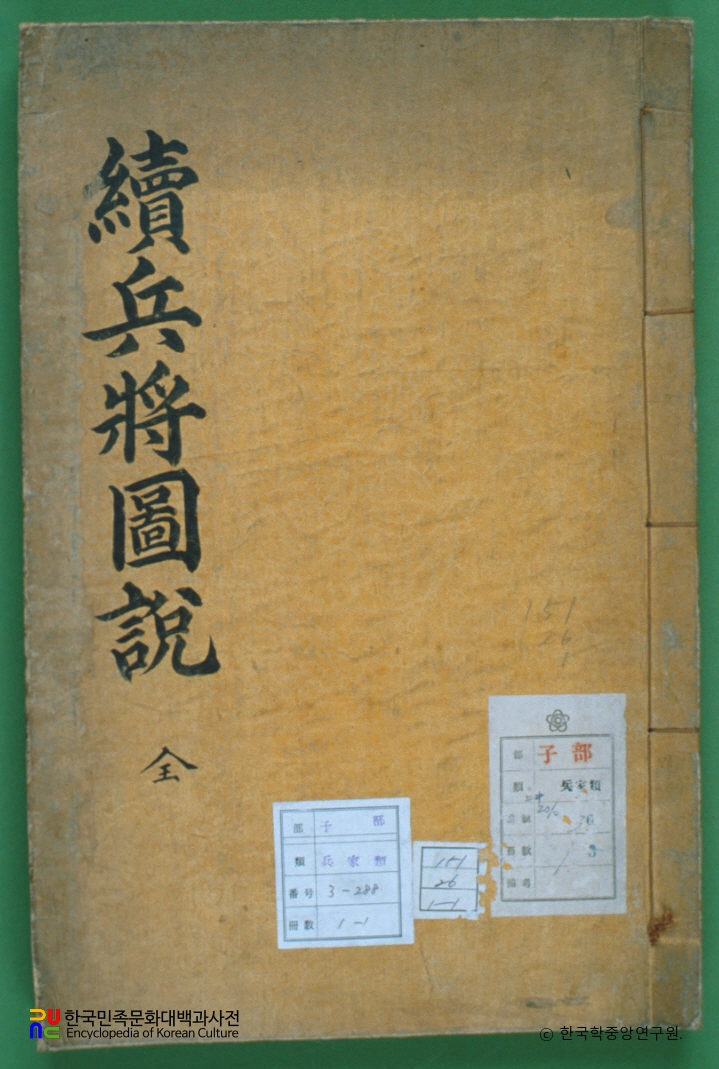 續兵將圖說
全
151
26
1
部 子 部
類 兵家類
番号 3-288
冊數 1-1
151
26
1-1
部 子部
類 兵家類
한국민족문화대백과사전
Encyclopedia of Korean Culture
© 한국학중앙연구원.